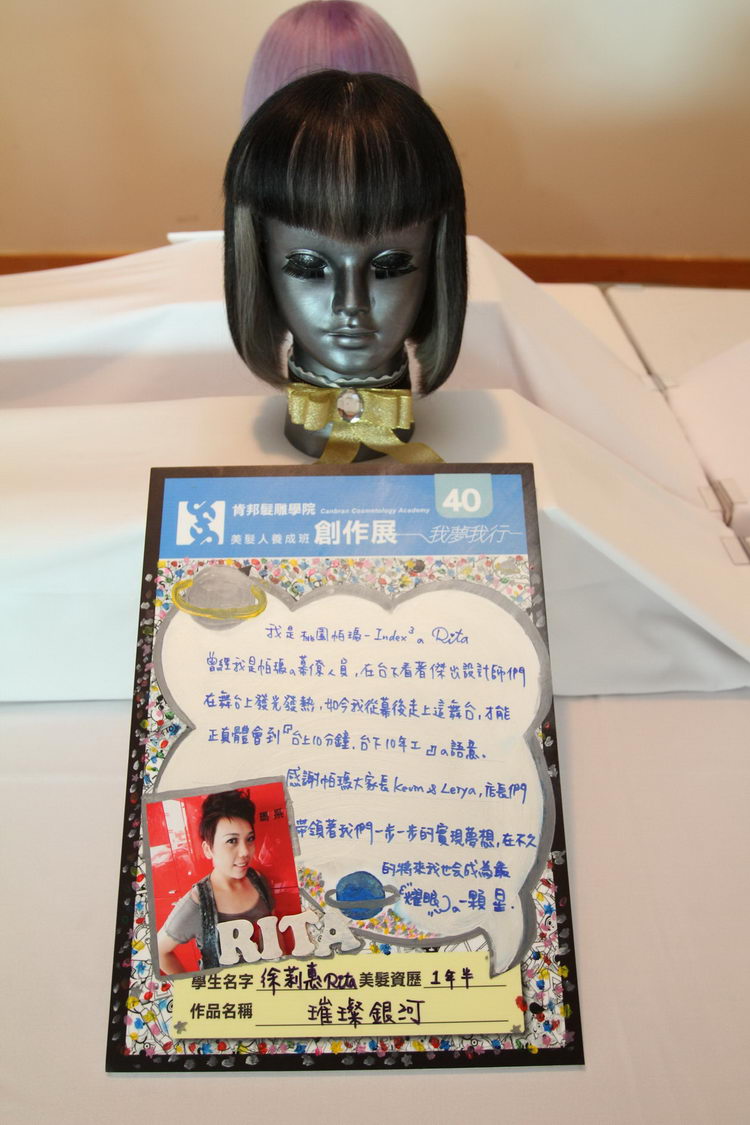 肯邦髮雕學院 Canbran Cosmetology Academy 40
美髮人養成班 創作展 我夢我行
我是桃園帕瑪-Index³ a Rita
曾經我是帕瑪a幕僚人員,在台下看著傑出設計師們
在舞台上發光發熱,如今我從幕後走上這舞台,才能
正真體會到『台上10分鐘.台下10年工』a語意.
感謝帕瑪大家長Kevin & Lerya,店長們
帶領著我們一步一步的實現夢想,在不久
的將來我也会成為最
『耀眼』a一顆星.
RITA
學生名字 徐莉惠Rita 美髮資歷 1年半
作品名稱 璀璨銀河